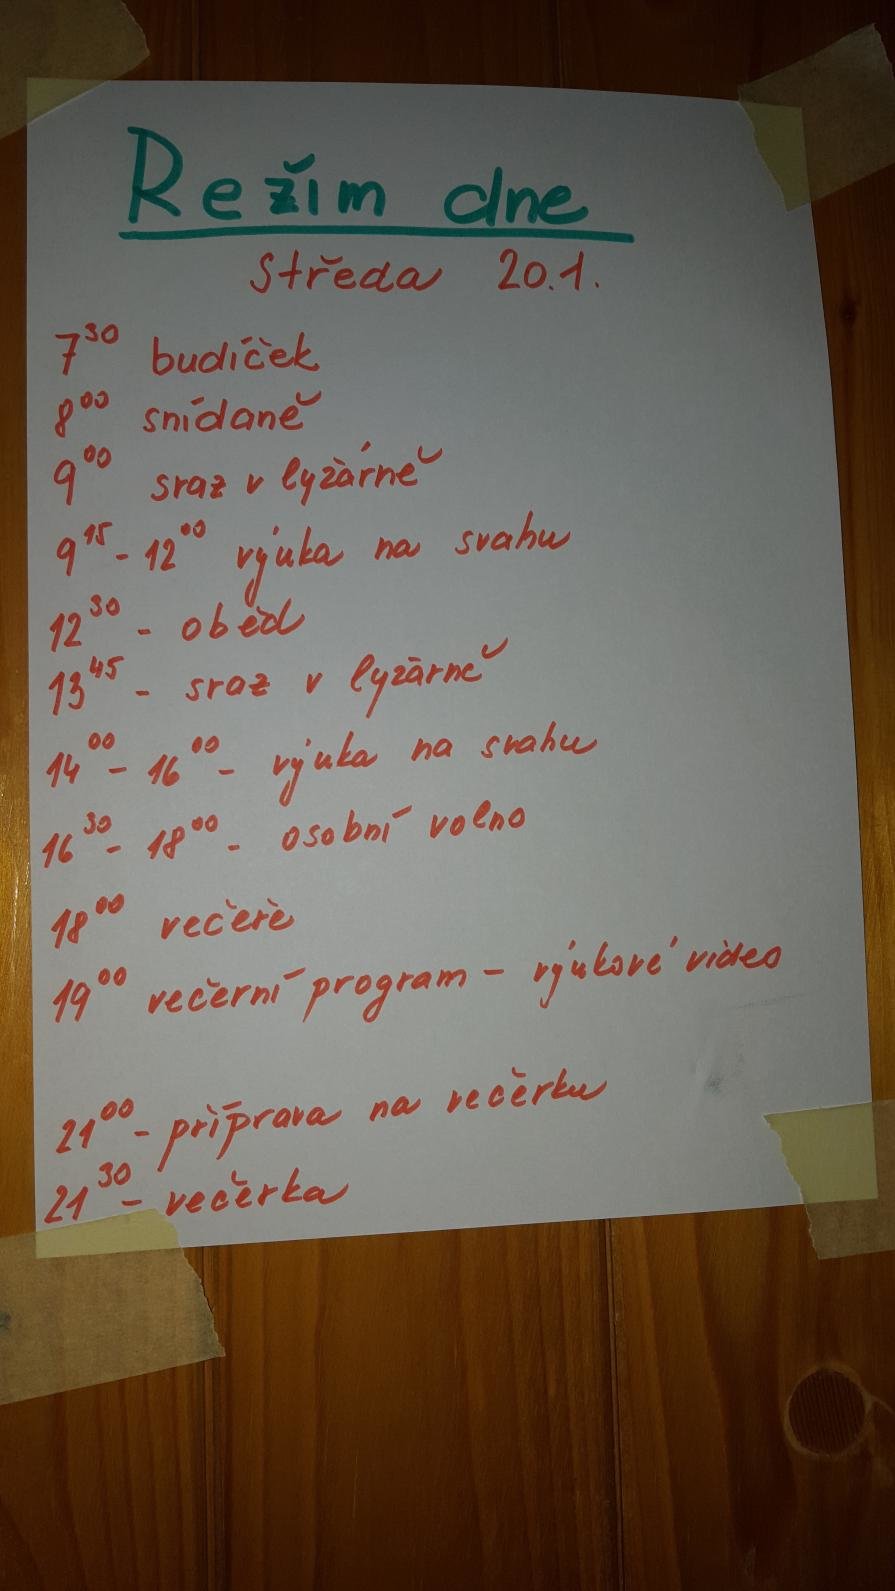 Režim dne
Středa 20.1.
7³⁰ budíček
8⁰⁰ snídaně
9⁰⁰ sraz v lyžárně
9¹⁵ - 12⁰⁰ výuka na svahu
12³⁰ - oběd
13⁴⁵ - sraz v lyžárně
14⁰⁰ - 16⁰⁰ - výuka na svahu
16³⁰ - 18⁰⁰ - osobní volno
18⁰⁰ večeře
19⁰⁰ večerní program - výukové video
21⁰⁰ - příprava na večerku
21³⁰ - večerka